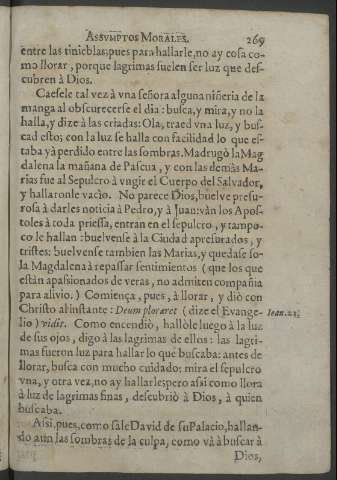 ASSVMPTOS MORALES. 269
entre las tinieblas; pues para hallarle, no ay cosa co-
mo llorar, porque lagrimas suelen ser luz que des-
cubren à Dios.
Caesele tal vez à vna señora alguna niñeria de la
manga al obscurecerse el dia: busca, y mira, y no la
halla, y dize à las criadas: Ola, traed vna luz, y bus-
cad esto; con la luz se halla con facilidad lo que es-
taba yà perdido entre las sombras. Madrugò la Mag
dalena la mañana de Pascua, y con las demàs Ma-
rias fue al Sepulcro à vngir el Cuerpo del Salvador,
y hallaronle vacìo. No parece Dios, buelve presu-
rosa à darles noticia à Pedro, y à Juan: vàn los Apos-
toles à toda priessa, entran en el sepulcro, y tampo-
co le hallan: buelvense à la Ciudad apresurados, y
tristes: buelvense tambien las Marias, y quedase so-
la Magdalena à repassar sentimientos (que los que
estàn apassionados de veras, no admiten compañia
para alivio.) Comiença, pues, à llorar, y diò con
Christo al instante: Deum ploraret (dize el Evange- Ioan. 21.
lio) vidit. Como encendiò, hallòle luego à la luz
de sus ojos, digo à las lagrimas de ellos: las lagri-
mas fueron luz para hallar lo que buscaba: antes de
llorar, busca con mucho cuidado: mira el sepulcro
vna, y otra vez, no ay hallarle; pero assi como llora
à luz de lagrimas finas, descubriò à Dios, à quien
buscaba.
Assi, pues, como sale David de su Palacio, hallan-
do aun las sombras de la culpa, como và à buscar à
Dios,